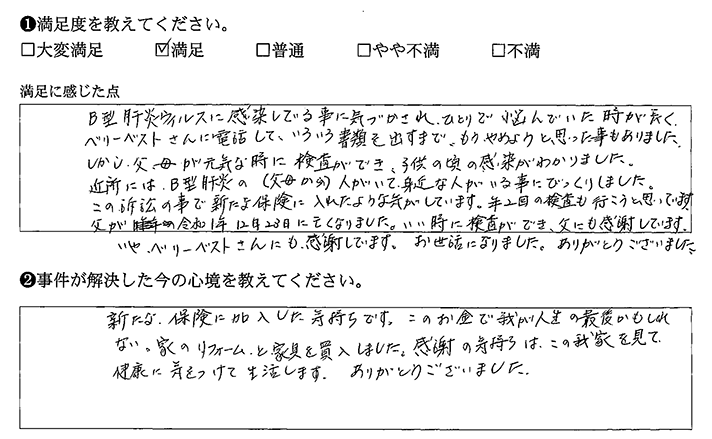 ❶満足度を教えてください。
□大変満足 ☑満足 □普通 □やや不満 □不満
満足に感じた点
B型肝炎ウィルスに感染している事に気づかされ、ひとりで悩んでいた時が長く、
ベリーベストさんに電話して、いろいろ書類を出すまで、もうやめようと思った事もありました。
しかし、父、母が元気な時に検査ができ、子供の頃の感染がわかりました。
近所には、B型肝炎の(父母から)人がいて、身近な人がいる事にびっくりしました。
この訴訟の事で新たな保険に入れたような気がしています。年2回の検査も行こうと思っています。
父が 令和1年12月23日に亡くなりました。いい時に検査ができ、父にも感謝しています。
いや、ベリーベストさんにも、感謝しています。お世話になりました。ありがとうございました。
❷事件が解決した今の心境を教えてください。
新たな、保険に加入した気持ちです。このお金で我が人生の最後かもしれ
ない。家のリフォームと家具を買入しました。感謝の気持ちは、この我家を見て
健康に気をつけて生活します。ありがとうございました。